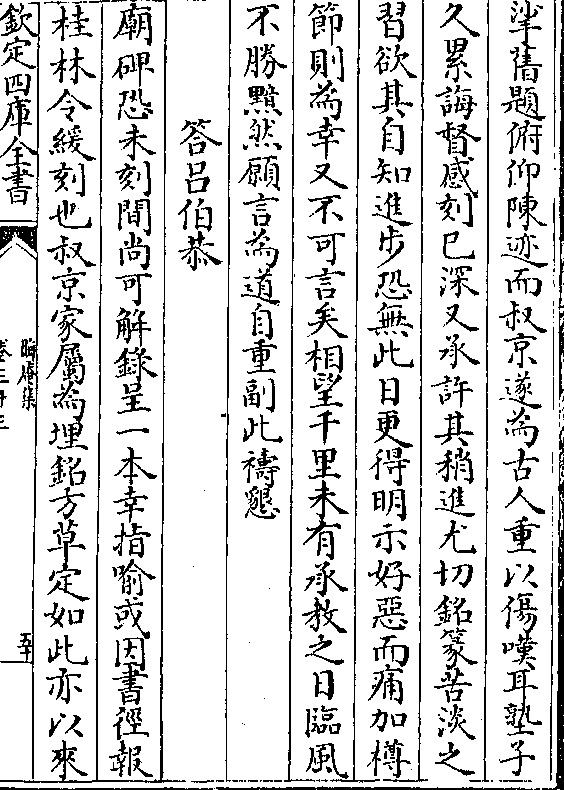 挲舊題俯仰陳迹而叔京遂為古人重以傷嘆耳塾子
久累誨督感刻已深又承許其稍進尤切銘篆苦淡之
習欲其自知進步恐無此日更得明示好惡而痛加樽
節則為幸又不可言矣相望千里未有承教之日臨風
不勝黯然願言為道自重副此禱懇
答呂伯恭
廟碑恐未刻間尚可解錄呈一本幸指喻或因書徑報
桂林令緩刻也叔京家屬為埋銘方草定如此亦以來
欽定四庫全書
晦庵集
卷三十三
五十